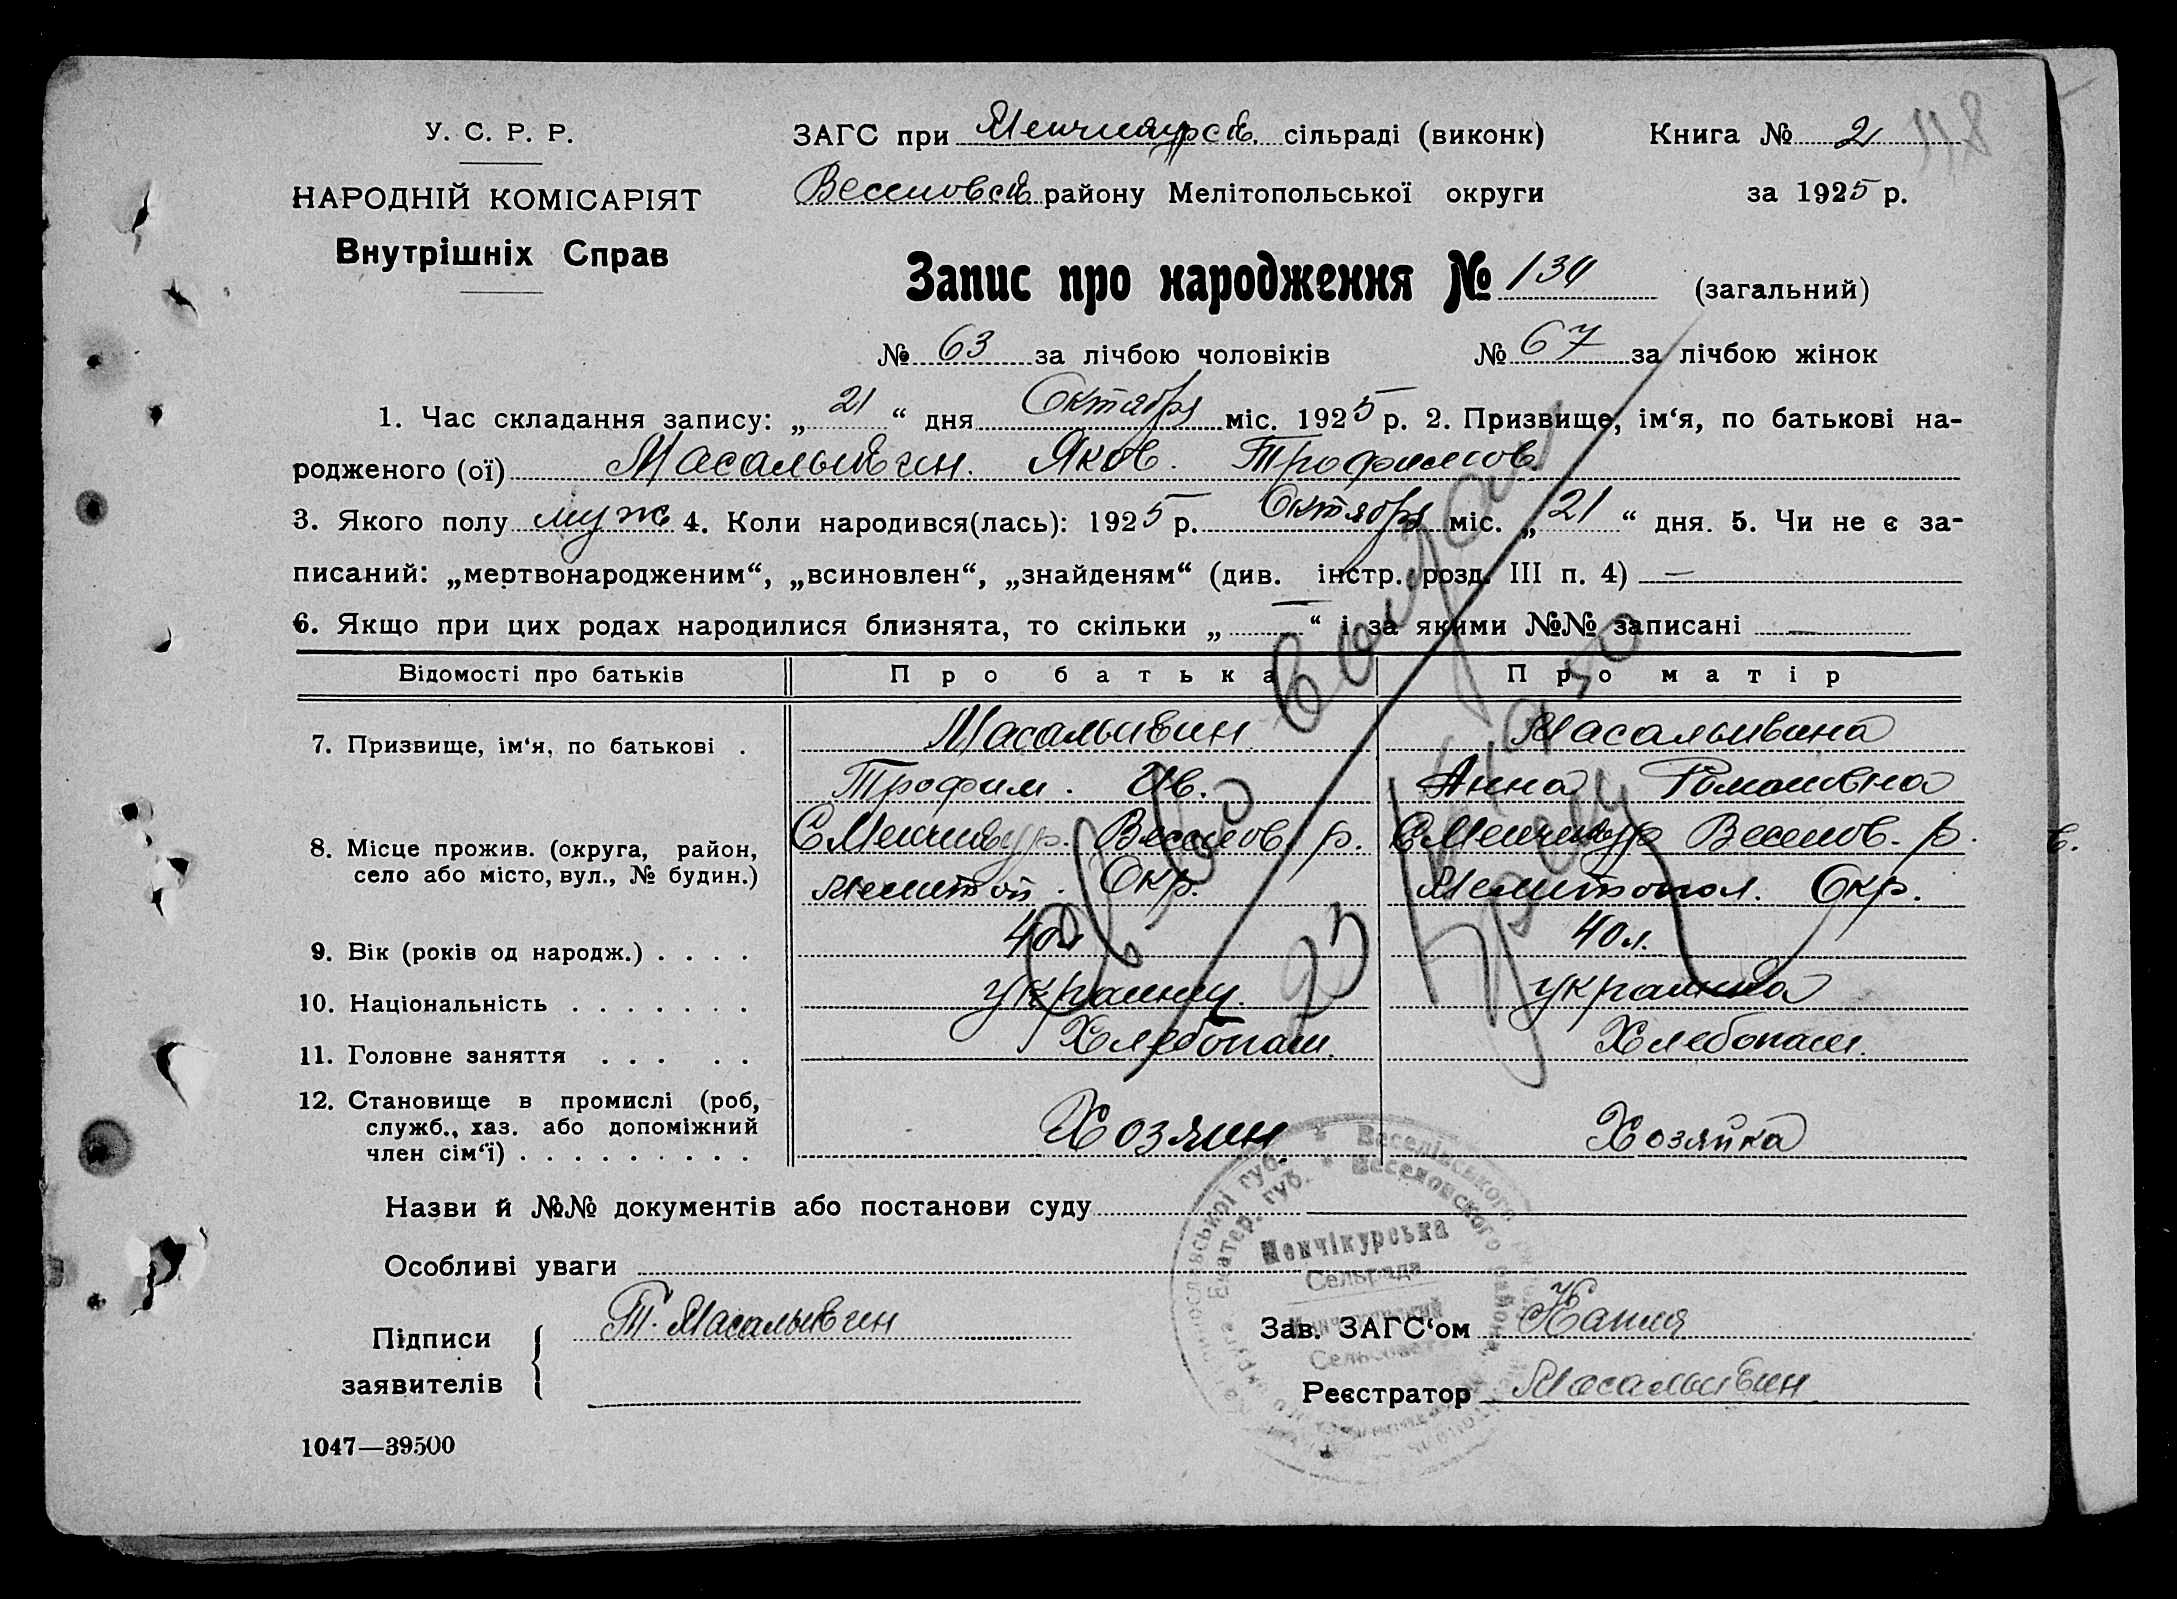 У. С. Р. Р.
НАРОДНІЙ КОМІСАРІЯТ
Внутрішніх Справ
ЗАГС при Менчикурск. сільраді (виконк)
Книга № 2
Веселовск району Мелітопольської округи
за 1925 р.
Запис про народження № 130 (загальний)
№ 63 за лічбою чоловіків № 67 за лічбою жінок
1. Час складання запису: „ 21 “ дня Октября міс. 1925 р. 2. Призвище, ім‘я, по батькові на-
родженого (ої) Масалыкин. Яков. Трофимов.
3. Якого полу муж 4. Коли народився(лась): 1925 р. Октября міс. „ 21 “ дня. 5. Чи не є за-
писаний: „мертвонародженим“, „всиновлен“, „знайденям“ (див. інстр. розд. III п. 4) —
6. Якщо при цих родах народилися близнята, то скільки „ — “ і за якими №№ записані —
Відомості про батьків Про батька Про матір
7. Призвище, ім‘я, по батькові . Масалыкин Масалыкина
Трофим. Ив. Анна Романовна
8. Місце прожив. (округа, район,
село або місто, вул., № будин.)
С Менчикур. Веселов. р. С Менчикур Веселов. р.
Мелитоп. Окр. Мелитопол. Окр.
9. Вік (років од народж.) . . . . 40л 40л.
10. Національність . . . . . . . украинц. украинка
11. Головне заняття . . . . . Хлебопаш. Хлебопаш.
12. Становище в промислі (роб,
служб., хаз. або допоміжний
член сім‘ї) . . . . . . . . . Хозяин Хозяйка
Назви й №№ документів або постанови суду
Особливі уваги
Менчікурська
Сельрада
Підписи
заявителів
Т. Масалыкин
Зав. ЗАГС‘ом
Реєстратор Масалыкин
1047—39500